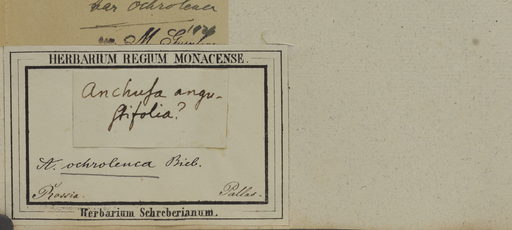 var ochroleuca
HERBARIUM REGIUM MONACENSE.
Anchusa angu-
stifolia?
A. ochroleuca Bieb.
Rossia. Pallas.
Herbarium Schreberianum.